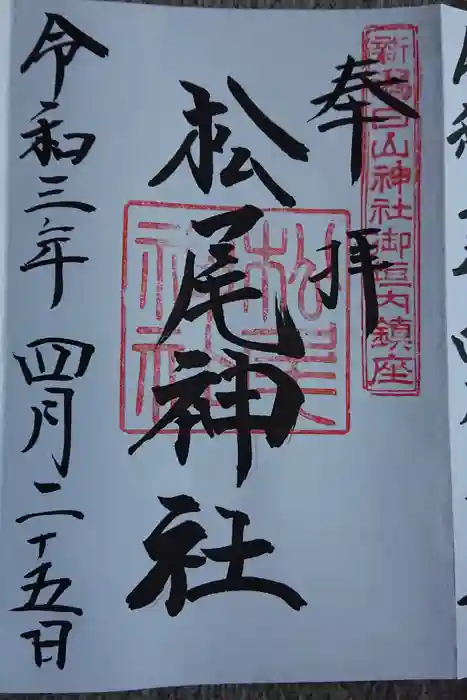 奉拝
新潟白山神社御垣内鎮座
松尾神社
松尾神社
令和三年四月二十五日